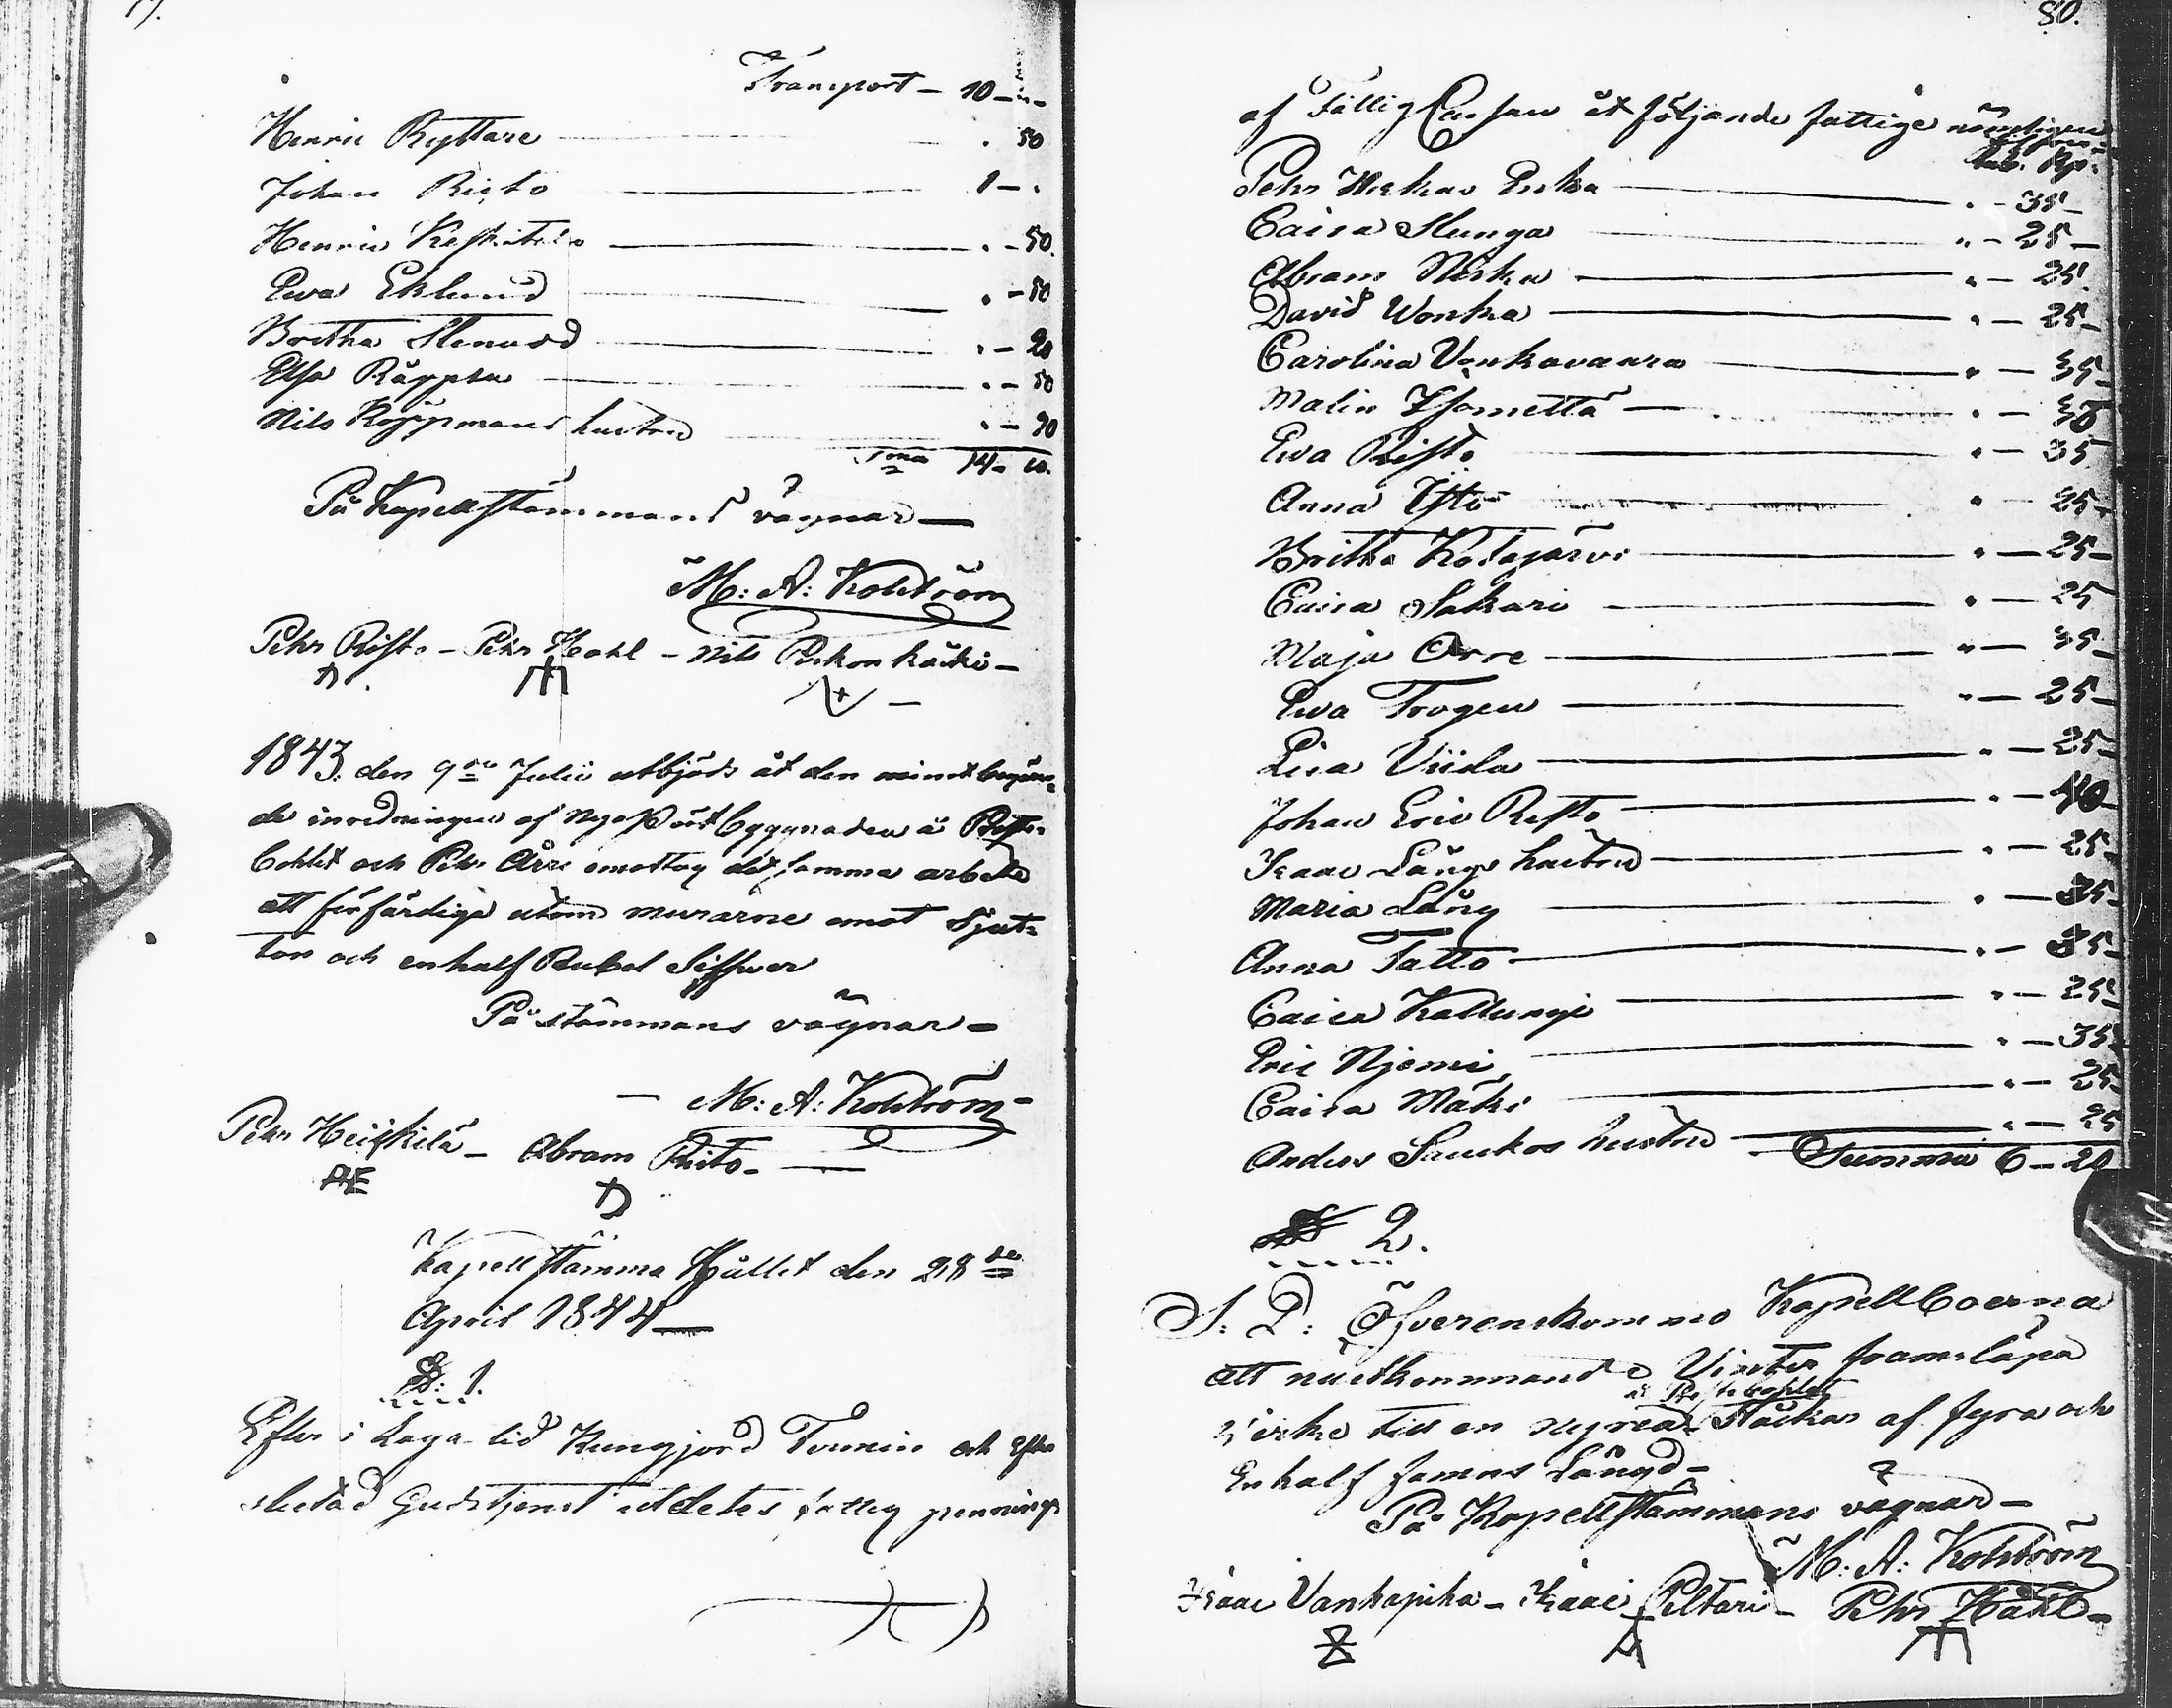 Transport — 10 —
Henric Ryttare — . 50
Johan Risto — 1 — .
Henric Keskitalo — . — 50.
Ewa Eklund — . — 50
Britha Stenudd — . — 20
Elsa Räppsu — . — 50
Nils Köppmans hustru — . — 90
Sma 14 — 10.
På Kapellstämmans vägnar —
M: A: Kohström
Pehr Risto — Pehr Hahl — Nils Perkonhäiki —
1843. den 9de Julii utbjöds åt den minst begäran-
de inredningen af Nya Pört byggnaden å Prest-
bohlet och Pehr Årre emottog det samma arbete
att förfärdiga utom murarne emot Sjut-
ton och enhalf Rubel Silfwer
På stämmans vägnar —
— M: A: Kohström —
Pehr Heiskilä — Abram Risto —
Kapellstämma Hållit den 28de
April 1844 —
§: 1.
Efter i Laga tid Kungjord Termin och efter
slutad Gudstjenst utdeltes fattig penningar
80.
af Fattig Cassan åt följande fattige nämligen
Silfver
Rub. Kp.
Pehr Niskas Enka — „ — 35 —
Caisa Slunga — „ — 25 —
Abram Niska — „ — 25.
David Wonka — „ — 25 —
Carolina Vonkavaara — „ — 35 —
Malin Isometsä — „ — 30
Ewa Risto — „ — 35
Anna Ylitö — „ — 25 —
Britha Kotajärvi — „ — 25 —
Caisa Sakari — „ — 25
Maja Orre — „ — 35 —
Ewa Trogen — „ — 25 —
Lisa Viida — „ — 25 —
Johan Eric Risto — „ — 40 —
Isaac Långs hustru — „ — 25 —
Maria Lång — „ — 35 —
Anna Tatto — „ — 35 —
Caisa Kallunge — „ — 25 —
Eric Njemi — „ — 35
Caisa Mäki — „ — 25
Anders Sauckos hustru — „ — 25
Summa 6 — 20
§ 2.
S: D: Öfverenskommo Kapellboerna
att nästkommande Vinter framsläpa
å Prestebohlett
virke till en ny rea Stuckar af fyra och
En half famns Längd —
På Kapellstämmans vägnar —
M: A: Kohström
Isaac Vankapiha — Isaac Peltari — Pehr Hahl —